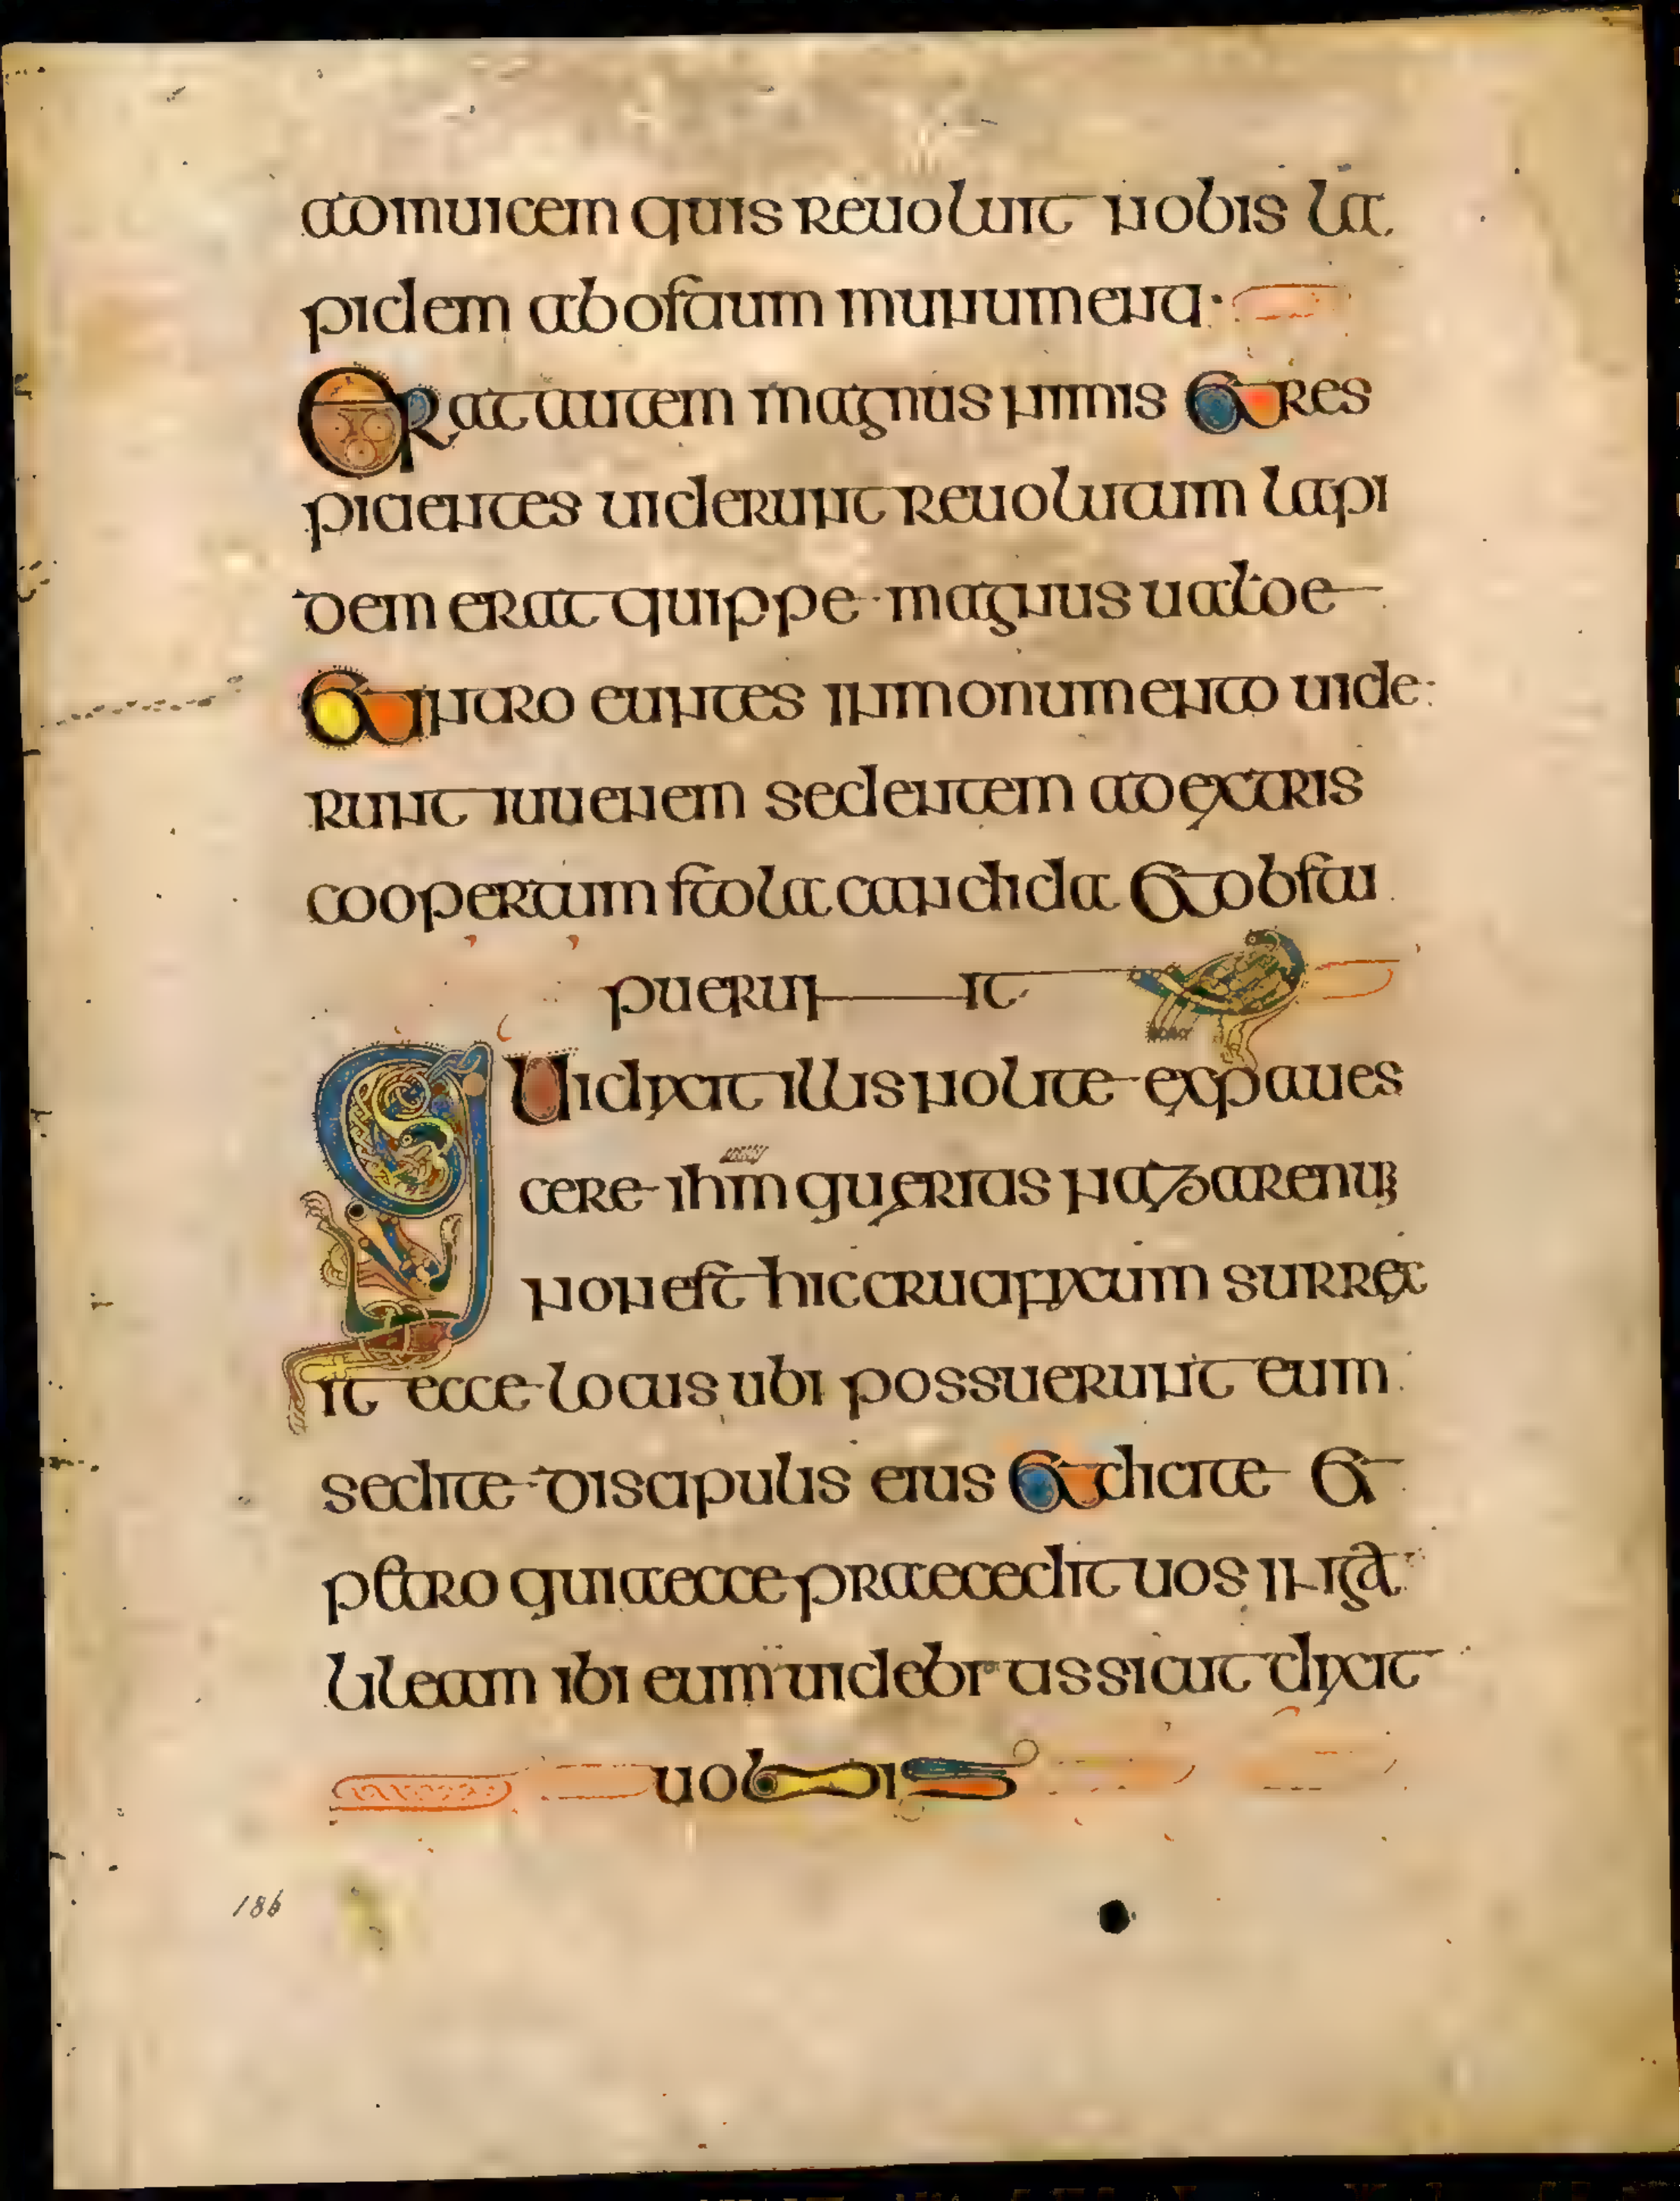 adinuicem quis reuoluit nobis la
pidem abosteum munumenti·
Erat autem magnus nimis et res
picientes uiderunt reuolutum lapi
dem erat quippe magnus ualde
Et intro euntes in monumento uide
runt iuuenem sedentem adextris
coopertum stola candida et obstu
puerunt
Qui dixit illis nolite expaues
cere ihm queritis nazarenum
non est hic crucifixum surrex
it ecce locus ubi possuerunt eum
sed ite discipulis eius et dicite et
petro quia ecce praecedit uos in ga
lileam ibi eum uidebitis sicut dixit
uobis
186